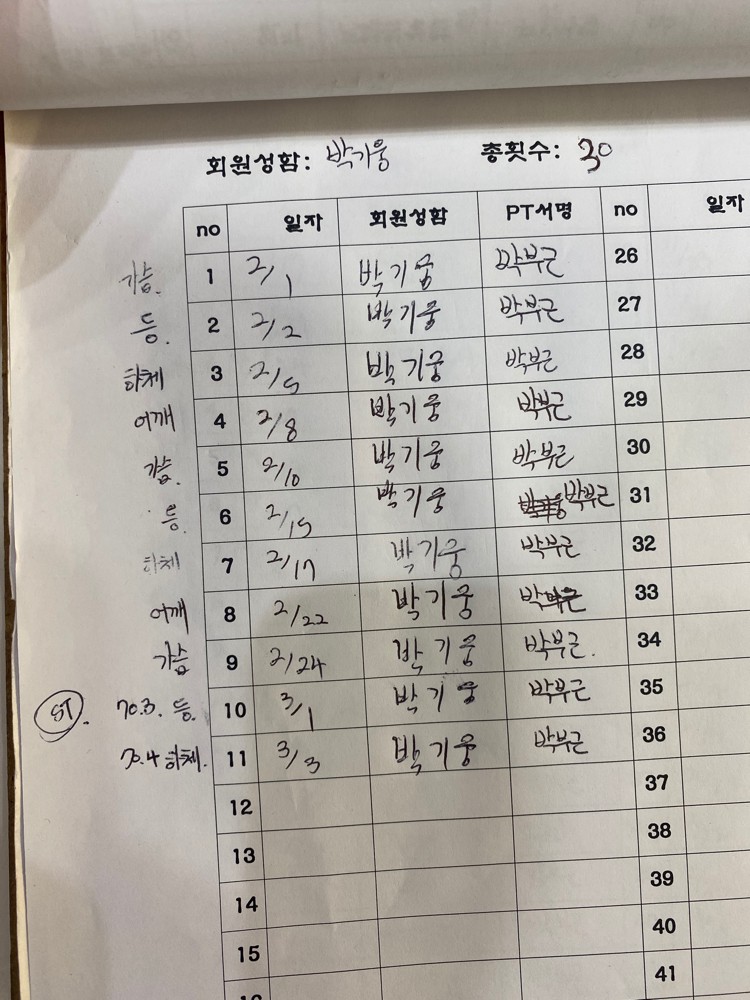 회원성함: 박기웅 총횟수: 30
no 일자 회원성함 PT서명 no 일자
가슴. 1 2/1 박기웅 박부근 26
등. 2 2/2 박기웅 박부근 27
하체 3 2/5 박기웅 박부근 28
어깨 4 2/8 박기웅 박부근 29
가슴. 5 2/10 박기웅 박부근 30
등. 6 2/15 박기웅 박부근 31
하체 7 2/17 박기웅 박부근 32
어깨 8 2/22 박기웅 박부근 33
가슴 9 2/24 박기웅 박부근. 34
ST. 70.3. 등. 10 3/1 박기웅 박부근 35
70.4 하체. 11 3/3 박기웅 박부근 36
12 37
13 38
14 39
15 40
41